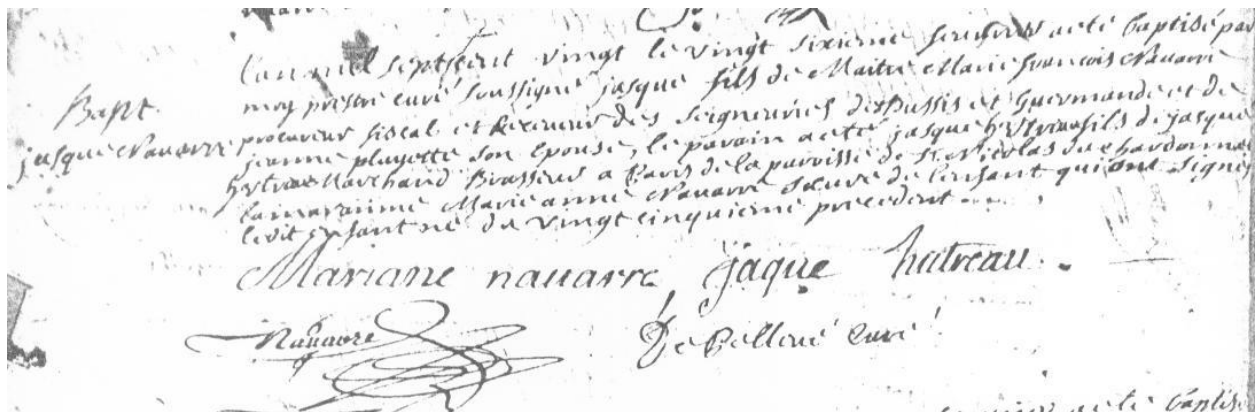 L'an mil sept cent vingt le vingt sixieme a eté baptisé par
moy prestre curé soussigné jasque fils de Maitre Marie francois Nauarre
Bapt.
jasque Nauarre
procureur fiscal et Receueur des Seigneuries de Bussis et Guermande et de
jeanne playette son Epouse, le parain a eté jasque fils de jasque
Marchand Brasseur a Paris de la paroisse de St Nicolas du chardonnet
la marainne Marie anne Nauarre Sœure de l'enfant qui ont signé
ledit enfant né du vingt cinquieme precedent
Mariane nauarre jaque hutreau.
Nauarre
De Belleué Curé
a eté baptisé